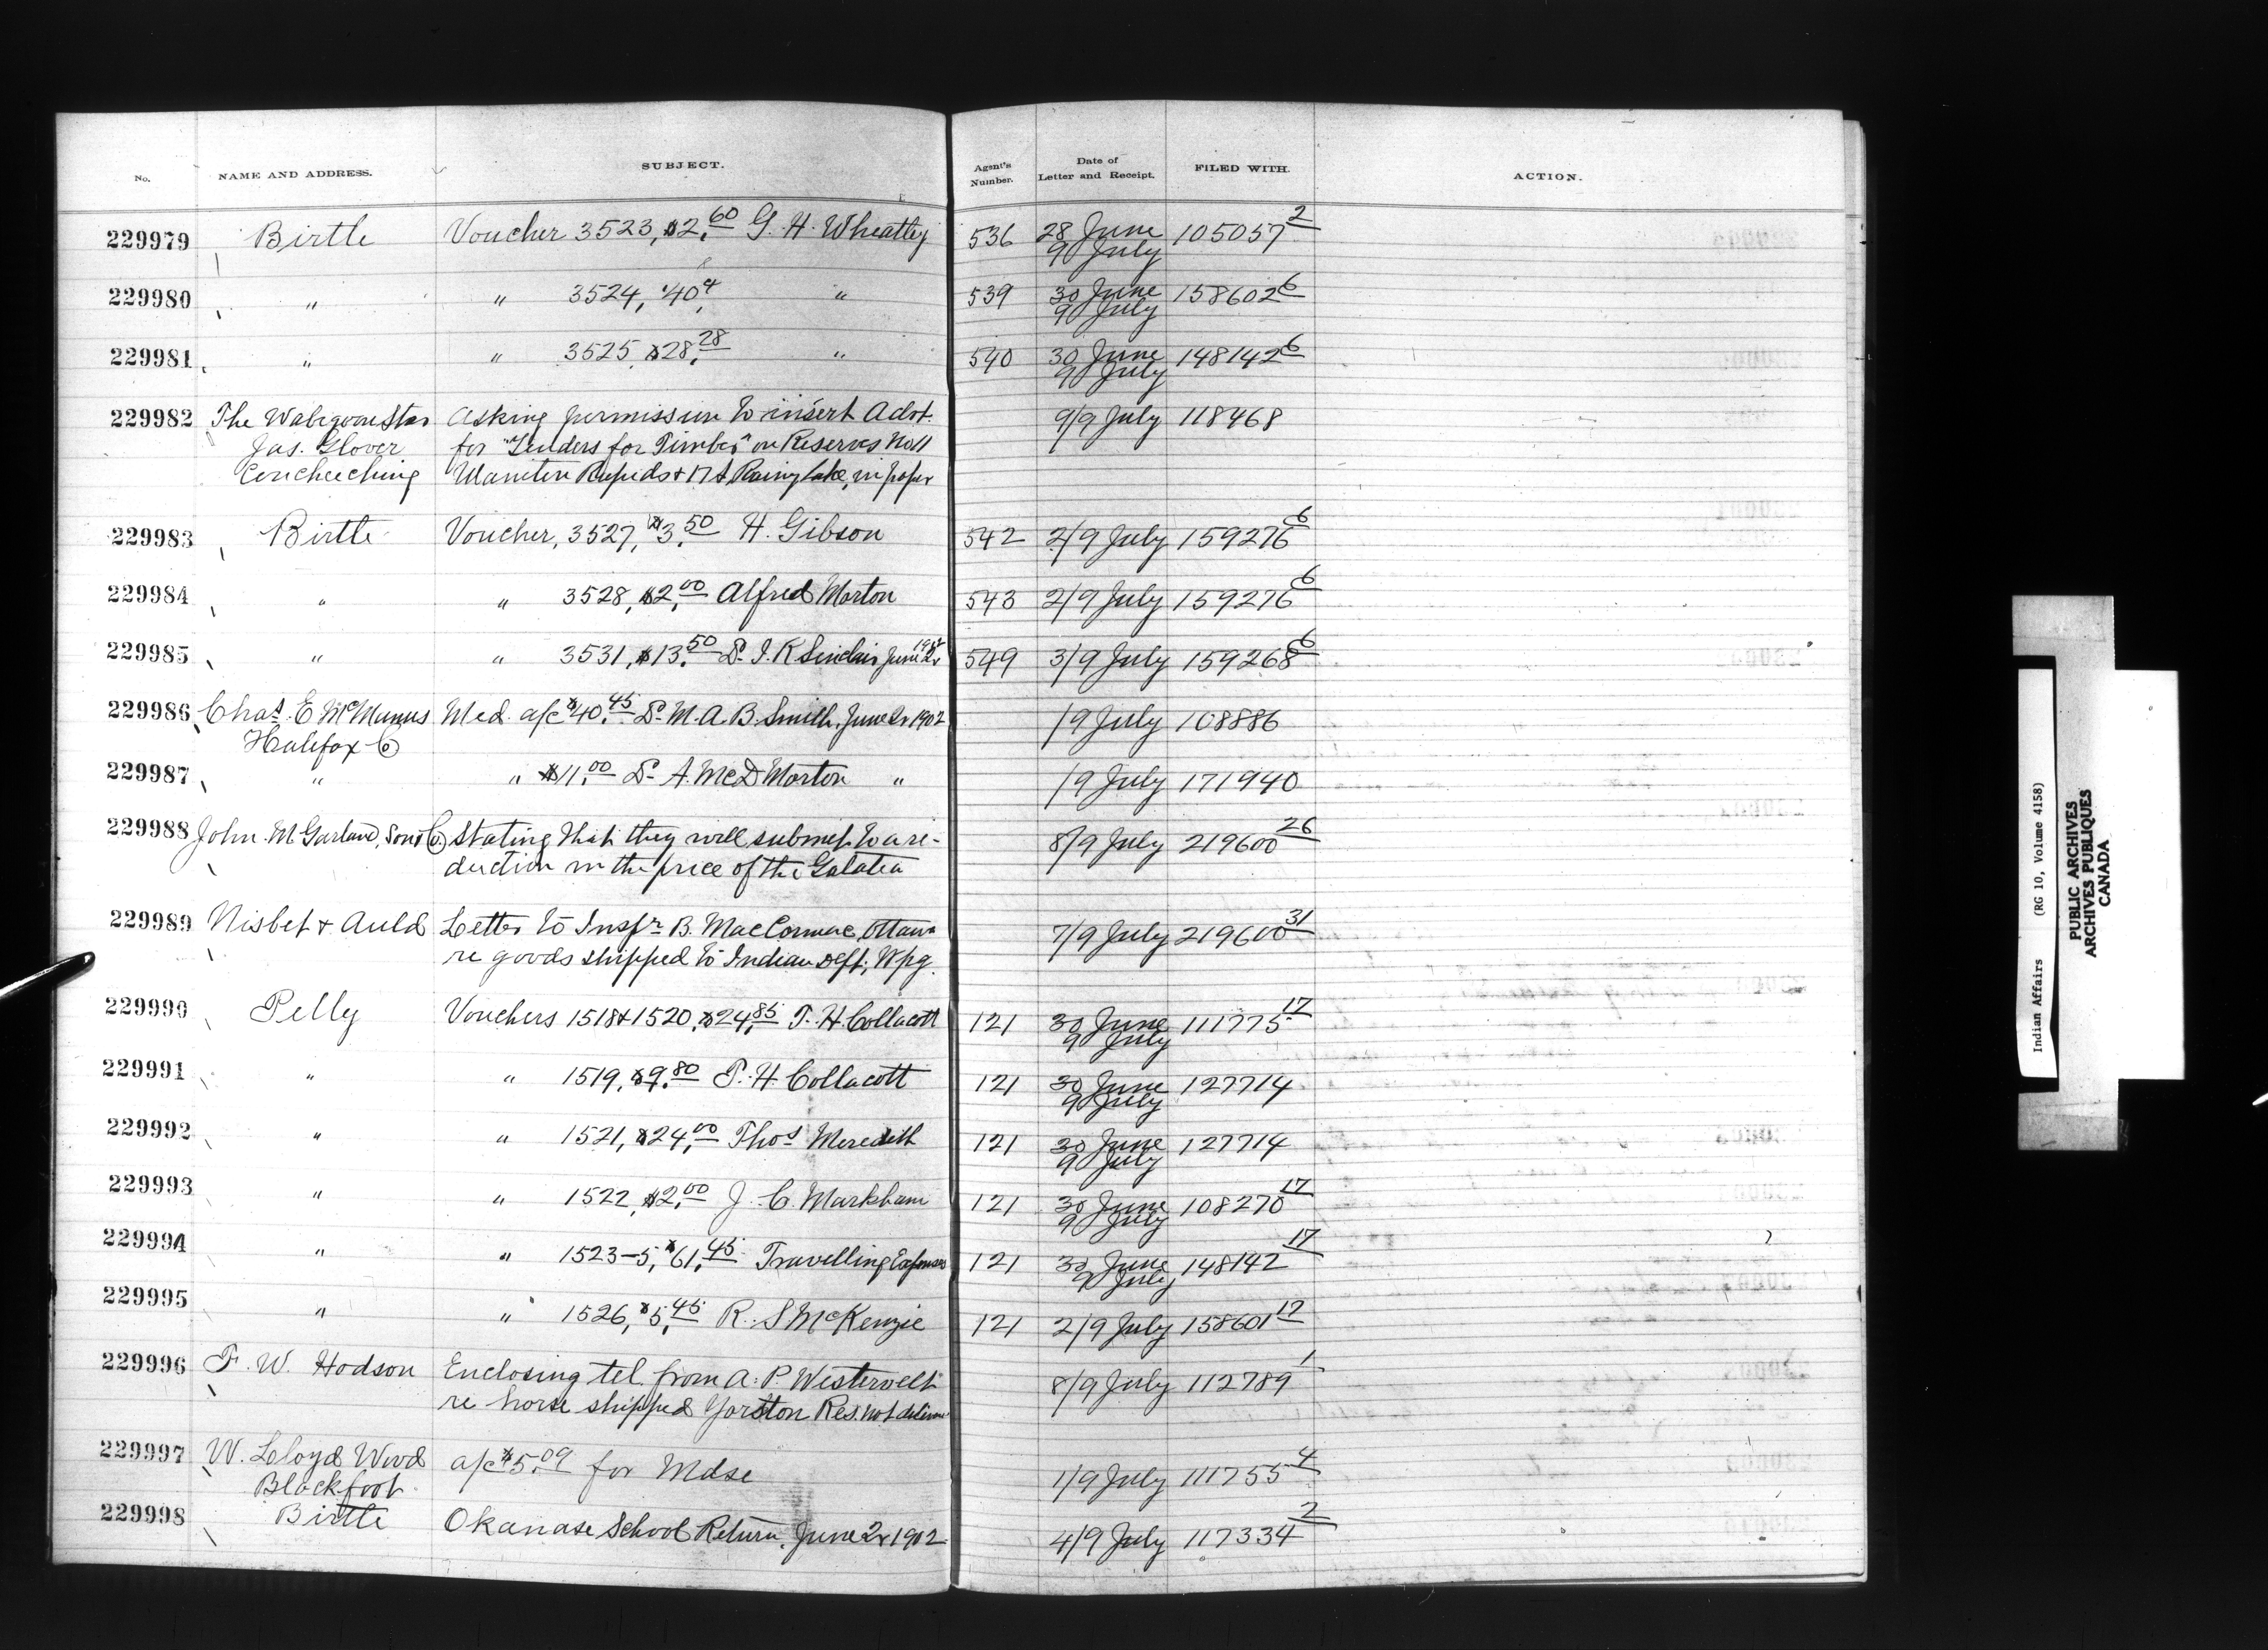 No. NAME AND ADDRESS. SUBJECT. Agent's Number. Date of Letter and Receipt. FILED WITH. ACTION.
229979 Birtle Voucher 3523, $2.60 G. H. Wheatley 536 28 June 9 July 105057 2
229980 " " 3524, 40 4 " 539 30 June 9 July 158602 6
229981 " " 3525, $28.28 " 540 30 June 9 July 148142 6
229982 The Wabigoon Star Asking permission to insert Advt. 9/9 July 118468
Jas. Glover for "Tenders for Timber" on Reserves No 11
Couchiching Maniton Rapids & 17 A, Rainy Lake, in paper
229983 Birtle Voucher, 3527, $3.50 H. Gibson 542 2/9 July 159276 6
229984 " " 3528, $2.00 Alfred Morton 543 2/9 July 159276 6
229985 " " 3531, $13.50 Dr. I. K Sinclair June 2r 1902 549 3/9 July 159268 6
229986 Chas. E McManus Med. a/c $40.45 Dr. M. A. B. Smith, June 2r 1902 /9 July 108886
Halifax Co
229987 " " $11.00 Dr A. McD Morton " /9 July 171940
229988 John M Garland, Son & Co. Stating that they will submit to a re- 8/9 July 219600 26
duction in the price of the Galatea
229989 Nisbet & Auld Letter to Inspr. B. MacCormac, Ottawa 7/9 July 219600 31
re goods shipped to Indian Dept, Wpg.
229990 Pelly Vouchers 1518 & 1520, $24.85 T. H. Collacott 121 30 June 9 July 111775 17
229991 " " 1519, $9.80 T. H. Collacott 121 30 June 9 July 127714
229992 " " 1521, $24.00 Thos. Meredith 121 30 June 9 July 127714
229993 " " 1522, $2.00 J. C. Markham 121 30 June 9 July 108270 17
229994 " " 1523-5, $61.45 Travelling Expenses 121 30 June 9 July 148142 17
229995 " " 1526, $5.45 R. S McKenzie 121 2/9 July 158601 17
229996 F. W. Hodson Enclosing tel. from A. P. Westervelt 8/9 July 112789 1
re horse shipped Yorston Res. not deliver
229997 W. Lloyd Wood a/c $5.09 for Mdse 1/9 July 111755 4
Blackfoot
229998 Birtle Okanase School Return, June 2r 1902 4/9 July 117334 2
Indian Affairs (RG 10, Volume 4158)
PUBLIC ARCHIVES
ARCHIVES PUBLIQUES
CANADA